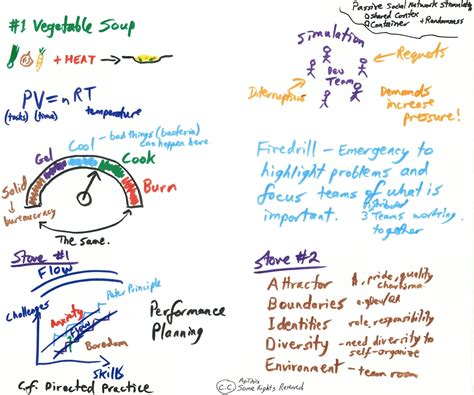 #1 Vegetable Soup
+ HEAT →
PV = nRT
(tasks) (time) temperature
Cool - bad things (bacteria)
can happen here.
Gel
Cook
Solid
Burn
bureaucracy
The same.
Stove #1
Flow
Peter Principle
Challenges
Anxiety
Flow
Boredom
Skills
Performance
Planning
C.f. Directed Practice
Passive Social Network Stimulate
shared Context
Container + Randomness
Simulation
Requests
Dev
Team
Interruptions
Demands
increase
pressure!
Firedrill - Emergency to
highlight problems and
focus teams of what is
important.
3 distributed
Teams working
together
Stove #2
Attractor
pride, quality
charisma
Boundaries
e.g. Dev/QA
Identities
role, responsibility
Diversity
- need diversity to
self-organize
Environment - team room
C.C. Some Rights Reserved